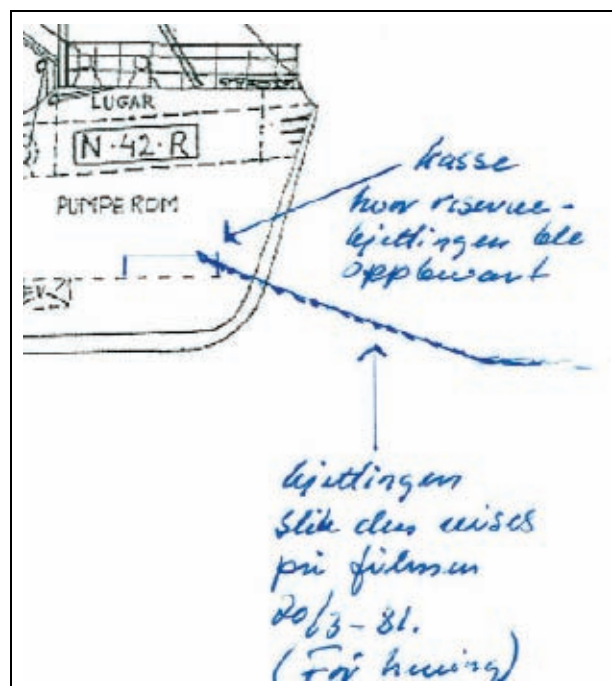 LUGAR
N-42-R
PUMPEROM
kasse
hvor reserve-
kjettingen ble
oppbevart
kjettingen
slik den vises
på filmen
20/3-81.
(Før heving)